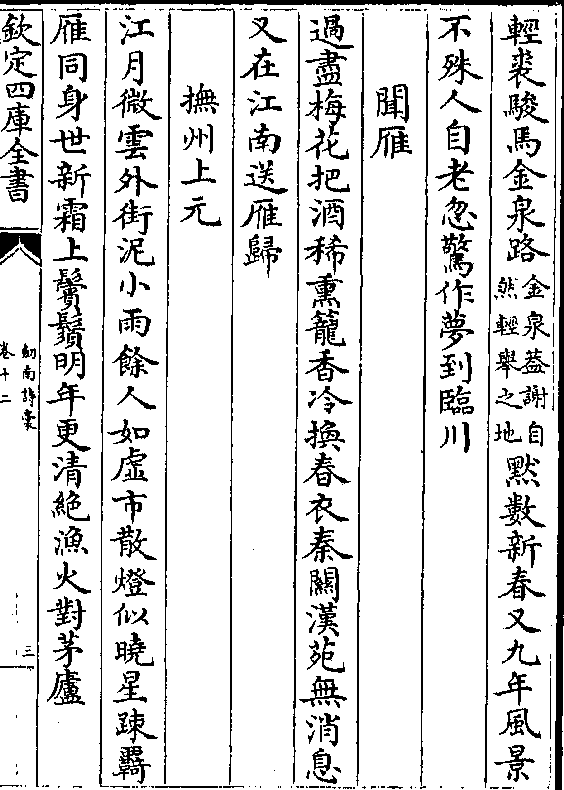 輕裘駿馬金泉路金泉葢謝自然輕舉之地黙數新春又九年風景
不殊人自老忽驚作夢到臨川
聞雁
過盡梅花把酒稀熏籠香冷換春衣秦關漢苑無消息
又在江南送雁歸
撫州上元
江月微雲外街泥小雨餘人如虛市散燈似曉星踈羇
雁同身世新霜上鬢鬚明年更清絶漁火對茅廬
欽定四庫全書
劒南詩稾
卷十二
三